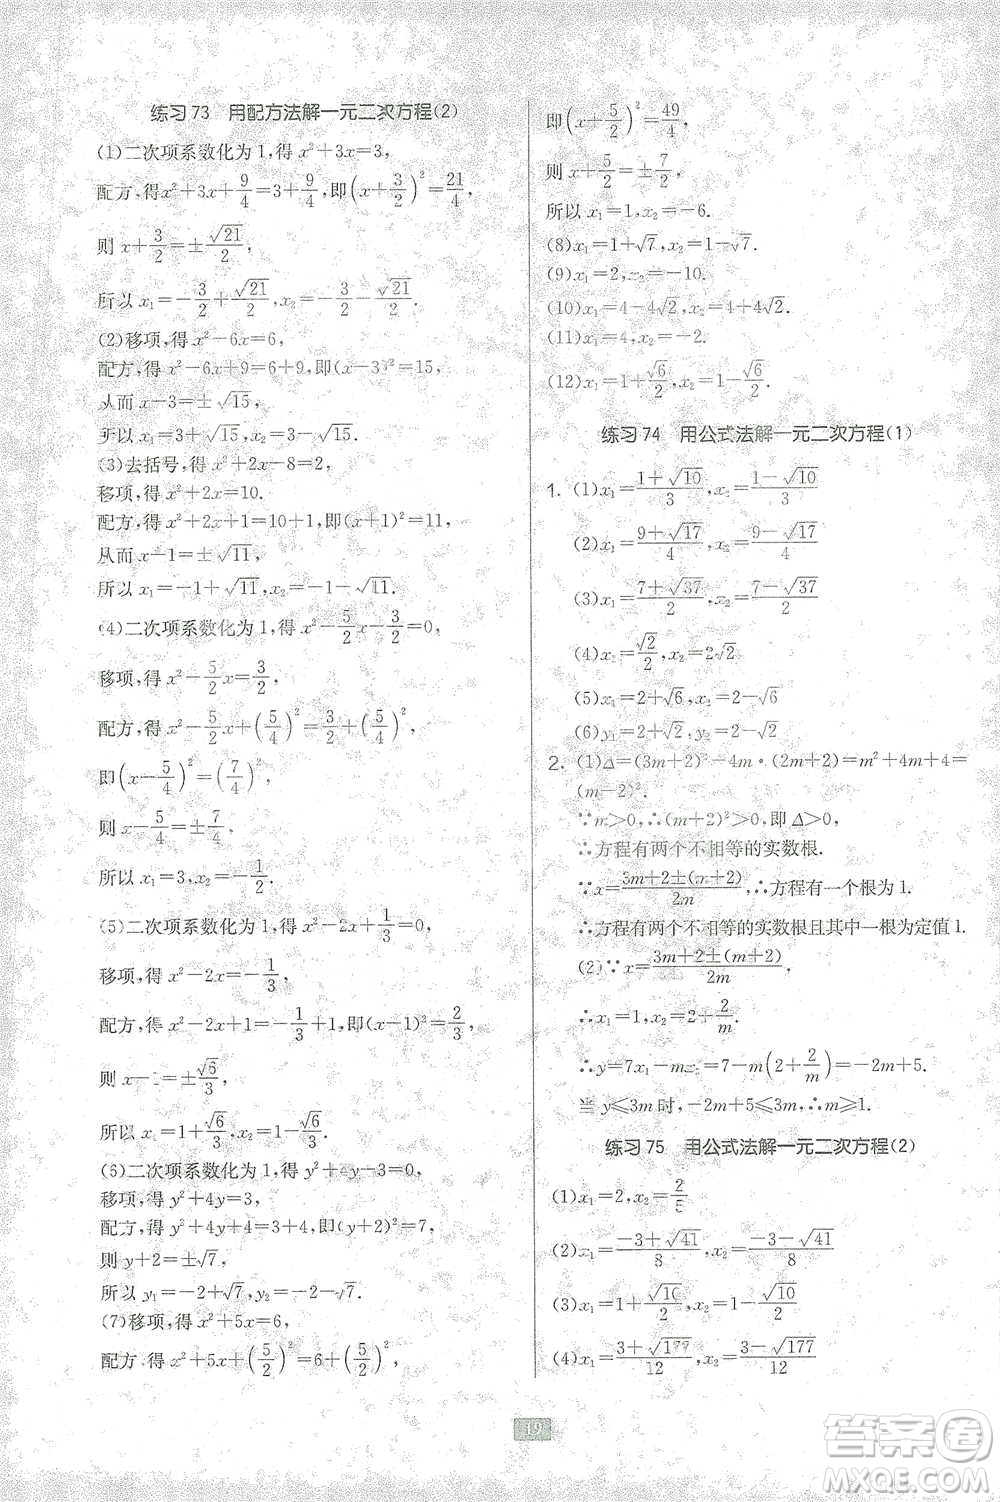 练习 73　用配方法解一元二次方程(2)
(1)二次项系数化为 1,得 x²+3x=3,
配方,得 x²+3x+9/4=3+9/4,即(x+3/2)²=21/4,
则 x+3/2=±√21/2,
所以 x₁=-3/2+√21/2,x₂=-3/2-√21/2.
(2)移项,得 x²-6x=6,
配方,得 x²-6x+9=6+9,即(x-3)²=15,
从而 x-3=±√15,
所以 x₁=3+√15,x₂=3-√15.
(3)去括号,得 x²+2x-8=2,
移项,得 x²+2x=10.
配方,得 x²+2x+1=10+1,即(x+1)²=11,
从而 x-1=±√11,
所以 x₁=-1+√11,x₂=-1-√11.
(4)二次项系数化为 1,得 x²-5/2x-3/2=0,
移项,得 x²-5/2x=3/2,
配方,得 x²-5/2x+(5/4)²=3/2+(5/4)²,
即(x-5/4)²=(7/4)²,
则 x-5/4=±7/4,
所以 x₁=3,x₂=-1/2.
(5)二次项系数化为 1,得 x²-2x+1/3=0,
移项,得 x²-2x=-1/3,
配方,得 x²-2x+1=-1/3+1,即(x-1)²=2/3,
则 x-1=±√6/3,
所以 x₁=1+√6/3,x₂=1-√6/3.
(6)二次项系数化为 1,得 y²+4y-3=0,
移项,得 y²+4y=3,
配方,得 y²+4y+4=3+4,即(y+2)²=7,
则 y+2=±√7,
所以 y₁=-2+√7,y₂=-2-√7.
(7)移项,得 x²+5x=6,
配方,得 x²+5x+(5/2)²=6+(5/2)²,
即(x+5/2)²=49/4,
则 x+5/2=±7/2,
所以 x₁=1,x₂=-6.
(8)x₁=1+√7,x₂=1-√7.
(9)x₁=2,x₂=-10.
(10)x₁=4-4√2,x₂=4+4√2.
(11)x₁=4,x₂=-2.
(12)x₁=1+√6/2,x₂=1-√6/2.
练习 74　用公式法解一元二次方程(1)
1. (1)x₁=(1+√10)/3,x₂=(1-√10)/3
(2)x₁=(9+√17)/4,x₂=(9-√17)/4
(3)x₁=(7+√37)/2,x₂=(7-√37)/2
(4)x₁=√2/2,x₂=2√2
(5)x₁=2+√6,x₂=2-√6
(6)y₁=2+√2,y₂=2-√2
2. (1)Δ=(3m+2)²-4m·(2m+2)=m²+4m+4=
(m-2)².
∵m>0,∴(m+2)²>0,即 Δ>0,
∴方程有两个不相等的实数根.
∵x=(3m+2±(m+2))/2m,∴方程有一个根为 1.
∴方程有两个不相等的实数根且其中一根为定值 1.
(2)∵x=(3m+2±(m+2))/2m,
∴x₁=1,x₂=2+2/m.
∴y=7x₁-mx₂=7-m(2+2/m)=-2m+5.
当 y≤3m 时,-2m+5≤3m,∴m≥1.
练习 75　用公式法解一元二次方程(2)
(1)x₁=2,x₂=2/5
(2)x₁=(-3+√41)/8,x₂=(-3-√41)/8
(3)x₁=1+√10/2,x₂=1-√10/2
(4)x₁=(3+√177)/12,x₂=(3-√177)/12
19
答案圈
MXQE.COM